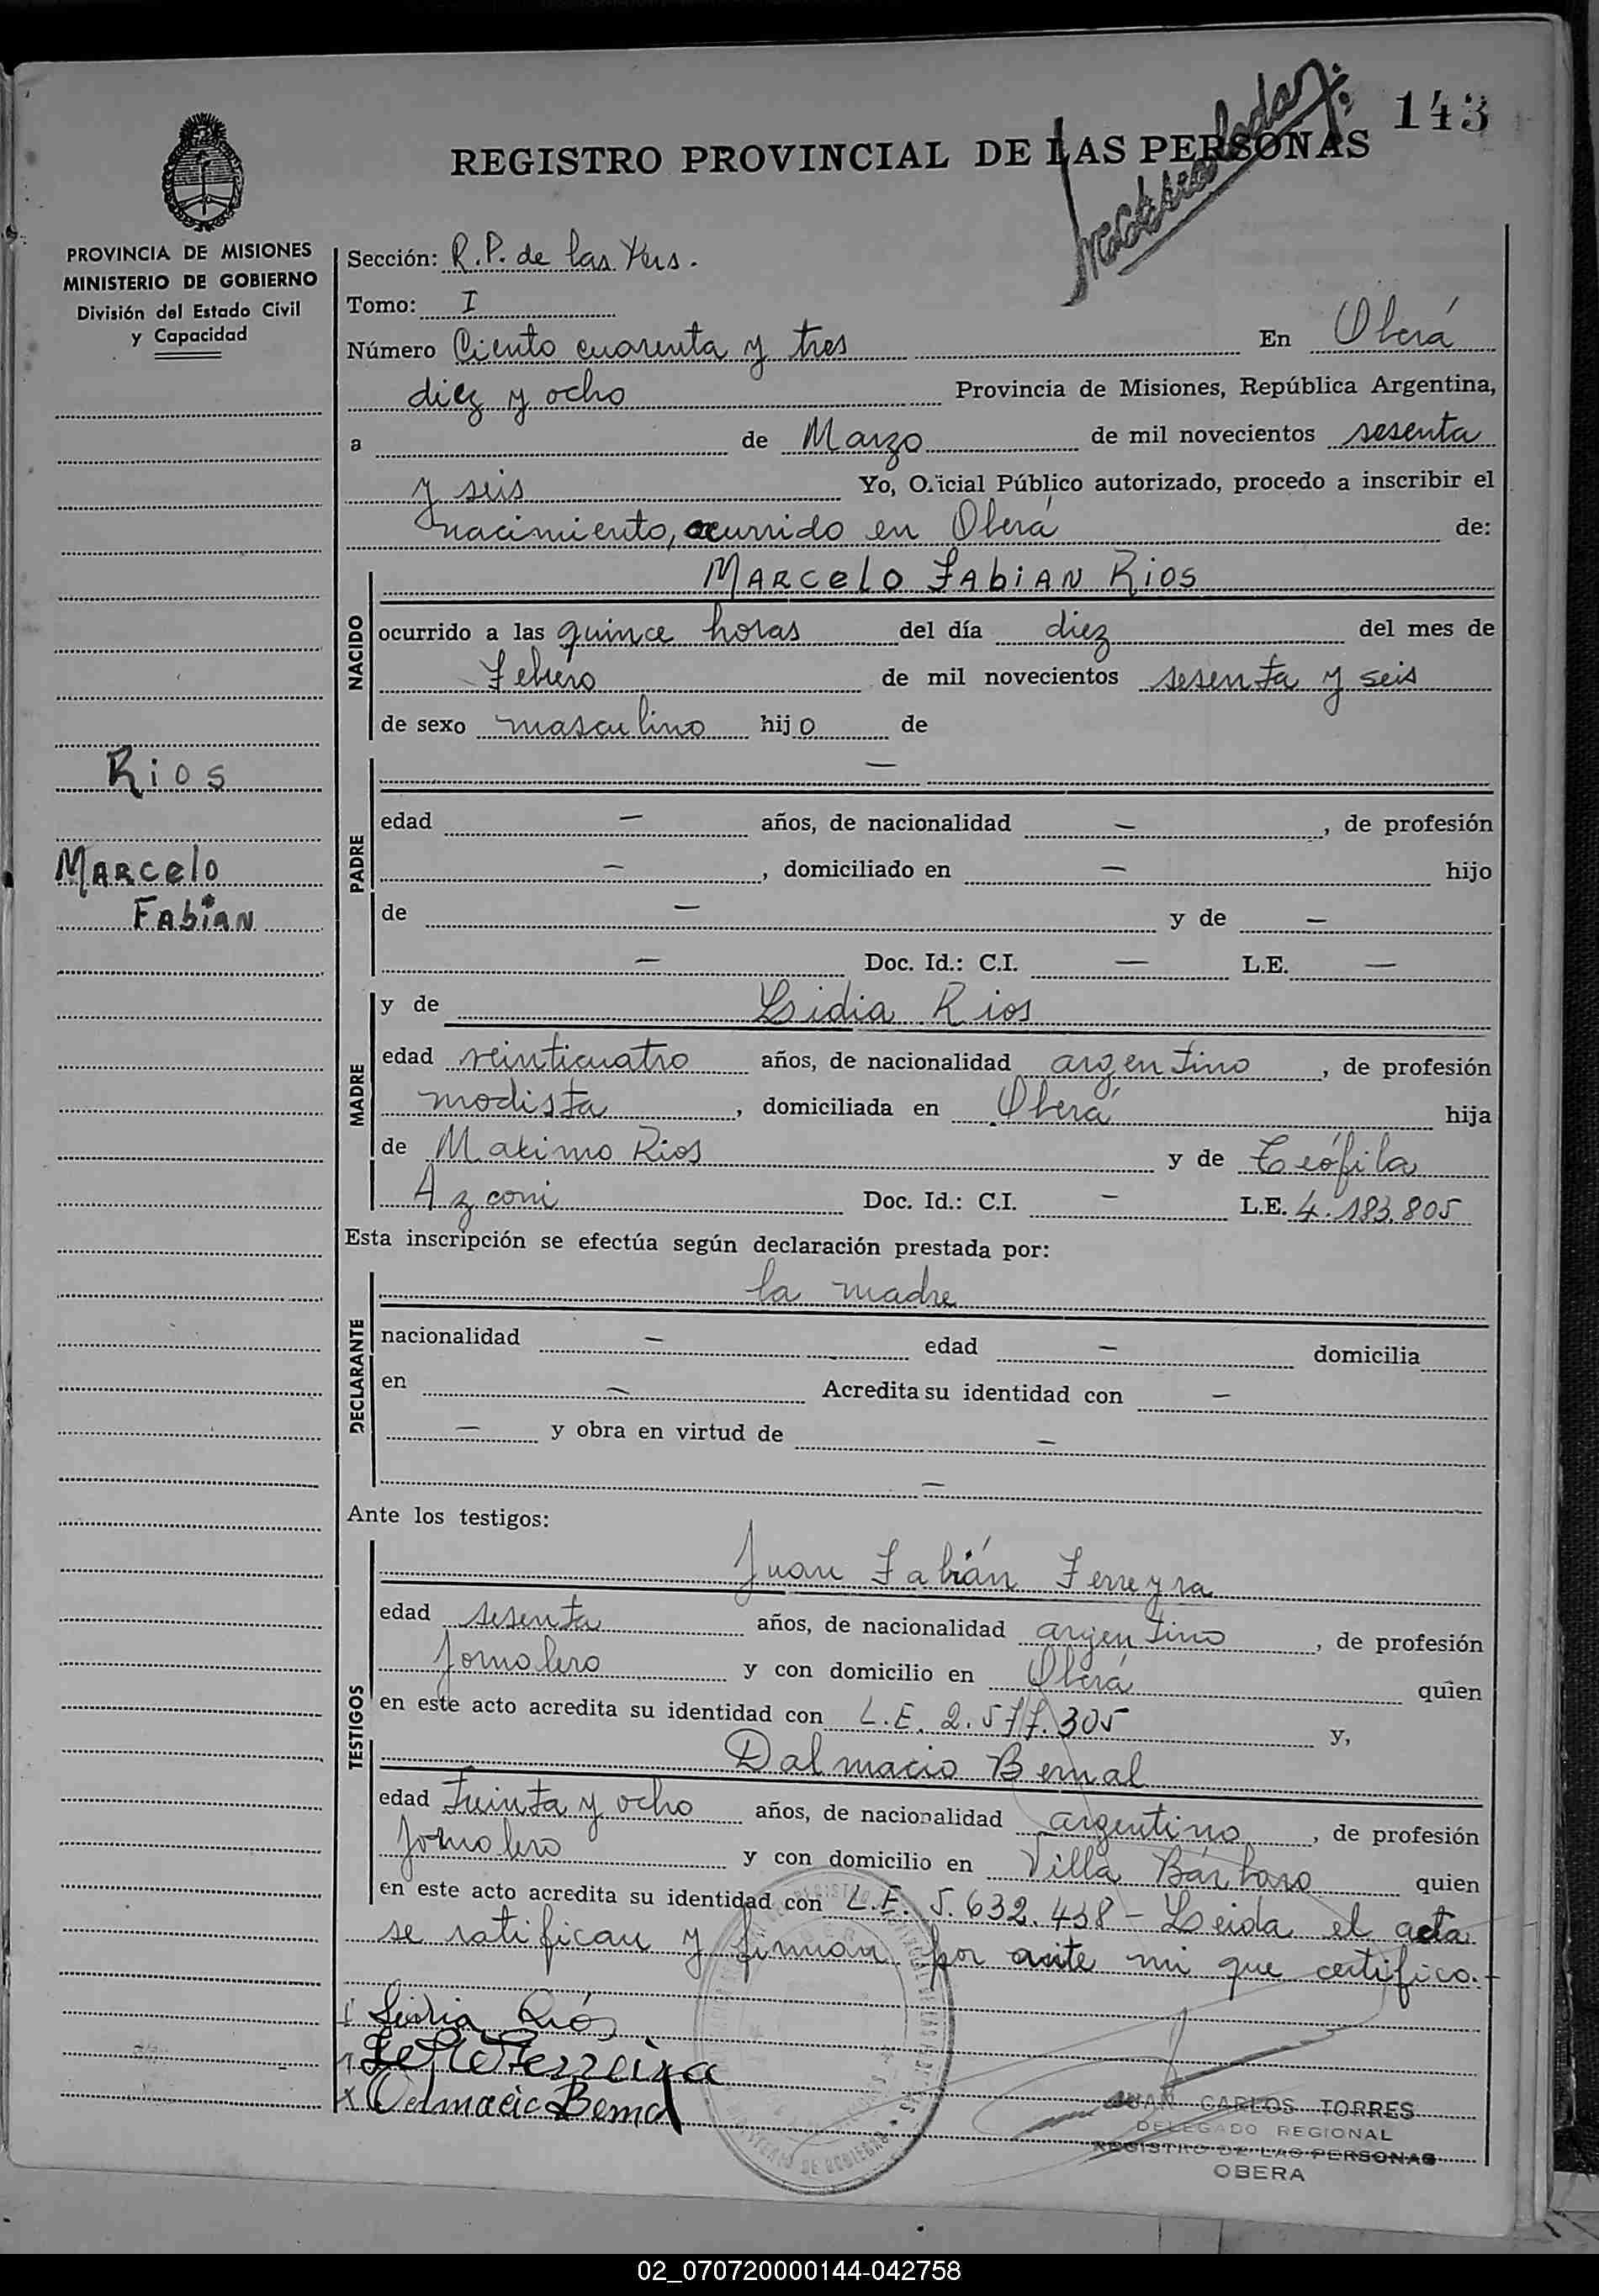 143
REGISTRO PROVINCIAL DE LAS PERSONAS
PROVINCIA DE MISIONES
MINISTERIO DE GOBIERNO
División del Estado Civil
y Capacidad
Rios
Marcelo
Fabian
Sección: R.P. de las Pers.
Tomo: I
Número Ciento cuarenta y tres En Oberá
diez y ocho Provincia de Misiones, República Argentina,
a de Marzo de mil novecientos sesenta
y seis Yo, Oficial Público autorizado, procedo a inscribir el
nacimiento, ocurrido en Oberá de:
NACIDO
Marcelo Fabian Rios
ocurrido a las quince horas del día diez del mes de
Febrero de mil novecientos sesenta y seis
de sexo masculino hijo de
PADRE
—
edad — años, de nacionalidad — , de profesión
— , domiciliado en — hijo
de — y de —
— Doc. Id.: C.I. — L.E. —
MADRE
y de Lidia Rios
edad veinticuatro años, de nacionalidad argentino , de profesión
modista , domiciliada en Oberá hija
de Maximo Rios y de Teófila
Azconi Doc. Id.: C.I. — L.E. 4.183.805
Esta inscripción se efectúa según declaración prestada por:
DECLARANTE
la madre
nacionalidad — edad — domicilia
en — Acredita su identidad con —
— y obra en virtud de —
—
Ante los testigos:
TESTIGOS
Juan Fabián Ferreyra
edad sesenta años, de nacionalidad argentino , de profesión
Jornalero y con domicilio en Oberá quien
en este acto acredita su identidad con L.E. 2.577.305 y,
Dalmacio Bernal
edad Treinta y ocho años, de nacionalidad argentino , de profesión
Jornalero y con domicilio en Villa Bárbara quien
en este acto acredita su identidad con L.E. 5.632.438 - Leida el acta
se ratifican y firman por ante mi que certifico.-
Lidia Ríos
Ferreira
Dalmacio Bernal
JUAN CARLOS TORRES
DELEGADO REGIONAL
REGISTRO DE LAS PERSONAS
OBERA
02_070720000144-042758